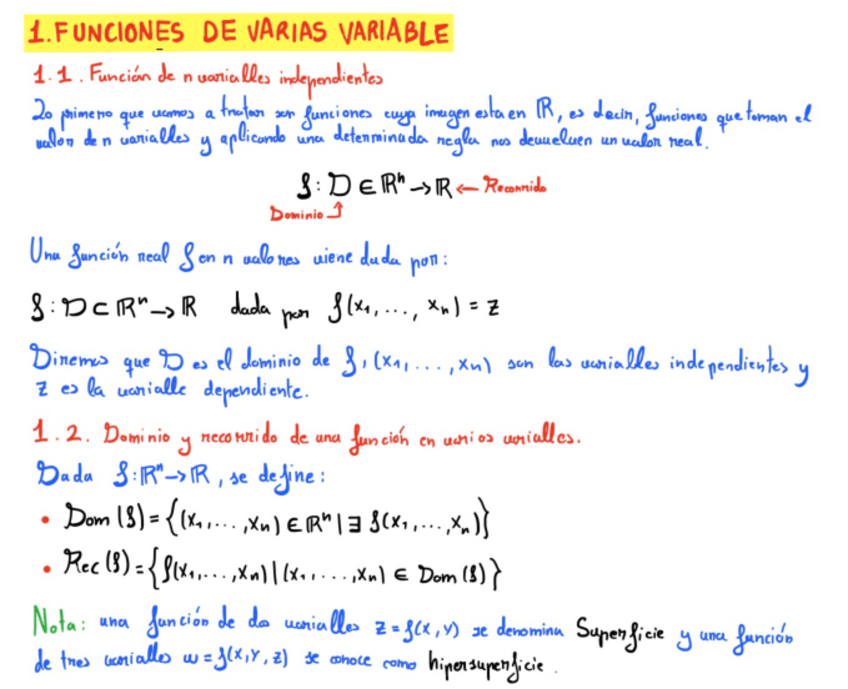 1. FUNCIONES DE VARIAS VARIABLE
1.1. Función de n variables independientes
Lo primero que vamos a tratar son funciones cuya imagen esta en ℝ, es decir, funciones que toman el
valor de n variables y aplicando una determinada regla nos devuelven un valor real.
f: D ∈ ℝⁿ → ℝ ← Recorrido
Dominio ↑
Una función real f en n valores viene dada por:
f: D ⊂ ℝⁿ → ℝ dada por f(x₁, ..., xₙ) = z
Diremos que D es el dominio de f, (x₁, ..., xₙ) son las variables independientes y
z es la variable dependiente.
1.2. Dominio y recorrido de una función en varios variables.
Dada f: ℝⁿ → ℝ, se define:
• Dom (f) = {(x₁, ..., xₙ) ∈ ℝⁿ | ∃ f(x₁, ..., xₙ)}
• Rec (f) = {f(x₁, ..., xₙ) | (x₁, ..., xₙ) ∈ Dom (f)}
Nota: una función de dos variables z = f(x, y) se denomina Superficie y una función
de tres variables w = f(x, y, z) se conoce como hipersuperficie.